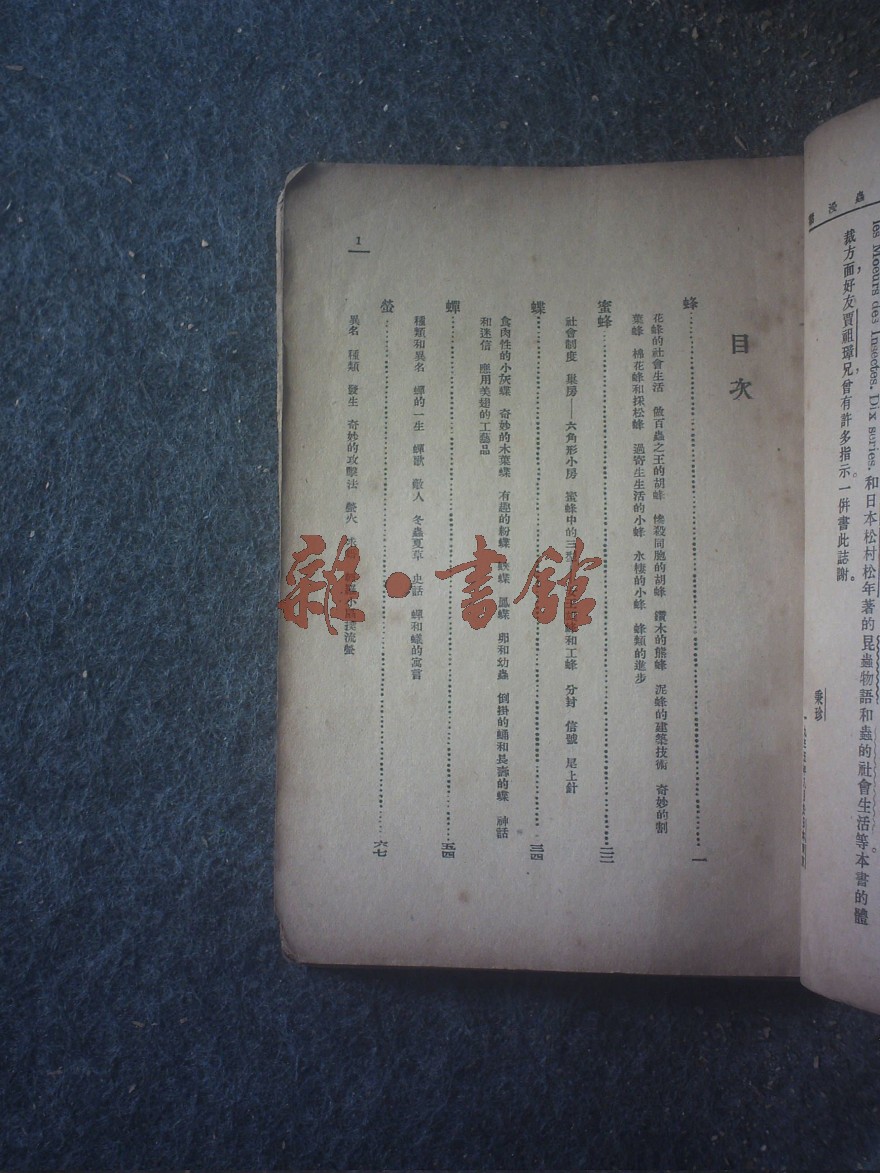 les Moeurs des Insectes. Dix series. 和日本松村松年著的昆蟲物語和蟲的社會生活等本書的體
裁方面，好友賈祖璋兄，曾有許多指示。一併書此誌謝。
秉珍
目次
蜂……一
花蜂的社會生活 做百蟲之王的胡蜂 慘殺同胞的胡蜂 鑽木的熊蜂 泥蜂的建築技術 奇妙的割
葉蜂 棉花蜂和採松蜂 過寄生生活的小蜂 水棲的小蜂 蜂類的進步
蜜蜂……二二
社會制度 巢房——六角形小房 蜜蜂中的三型 和工蜂 分封 信號 尾上針
蝶……三四
食肉性的小灰蝶 奇妙的木葉蝶 有趣的粉蝶 蛺蝶 鳳蝶 卵和幼蟲 倒掛的蛹和長壽的蝶 神話
和迷信 應用美翅的工藝品
蟬……五四
種類和異名 蟬的一生 蟬歌 敵人 冬蟲夏草 史話 蟬和蟻的寓言
螢……六七
異名 種類 發生 奇妙的攻擊法 螢火 流螢
1
雜·書館